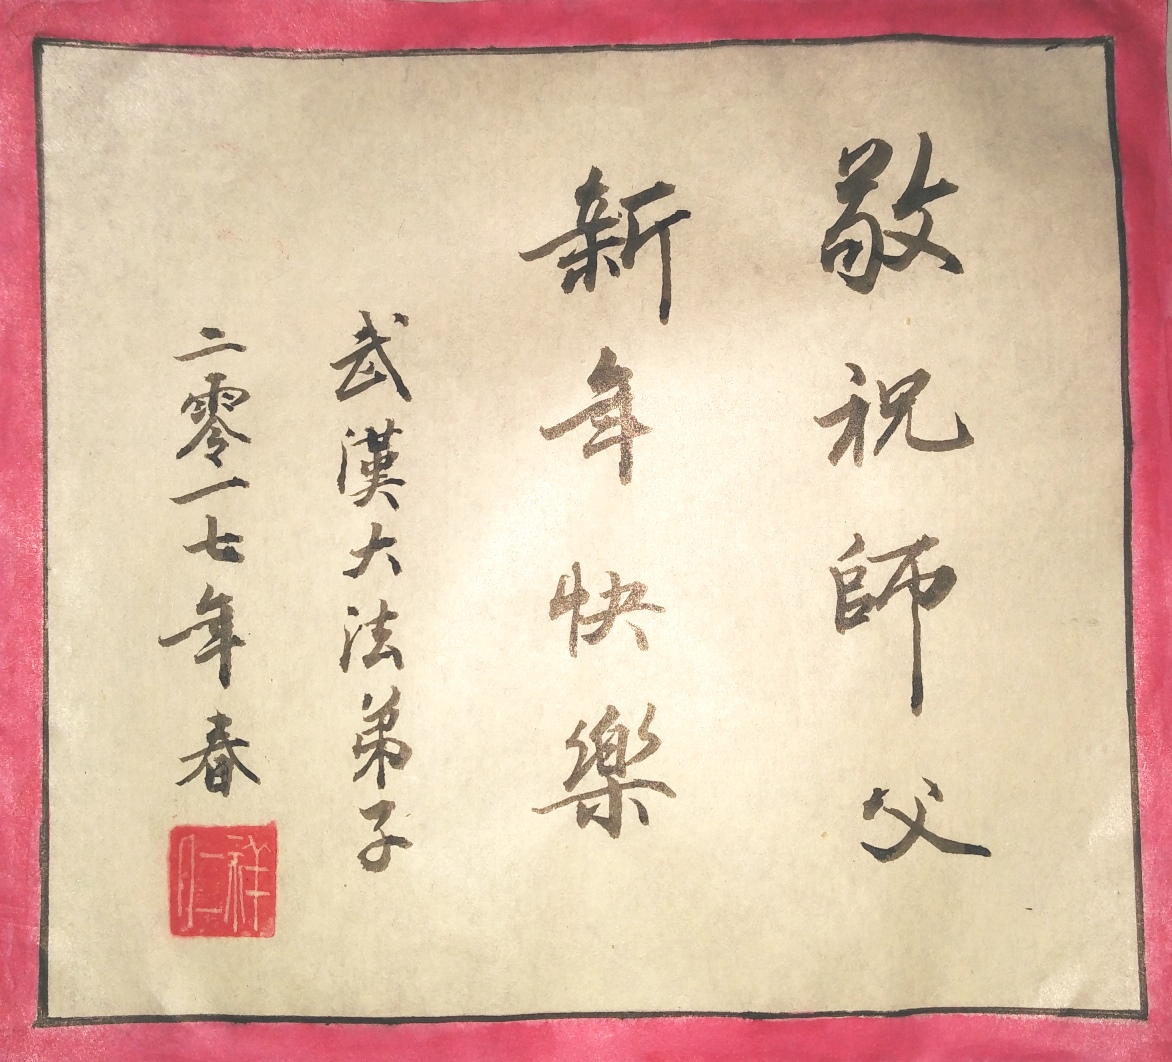 敬祝師父
新年快樂
武漢大法弟子
二零一七年春
祥仁